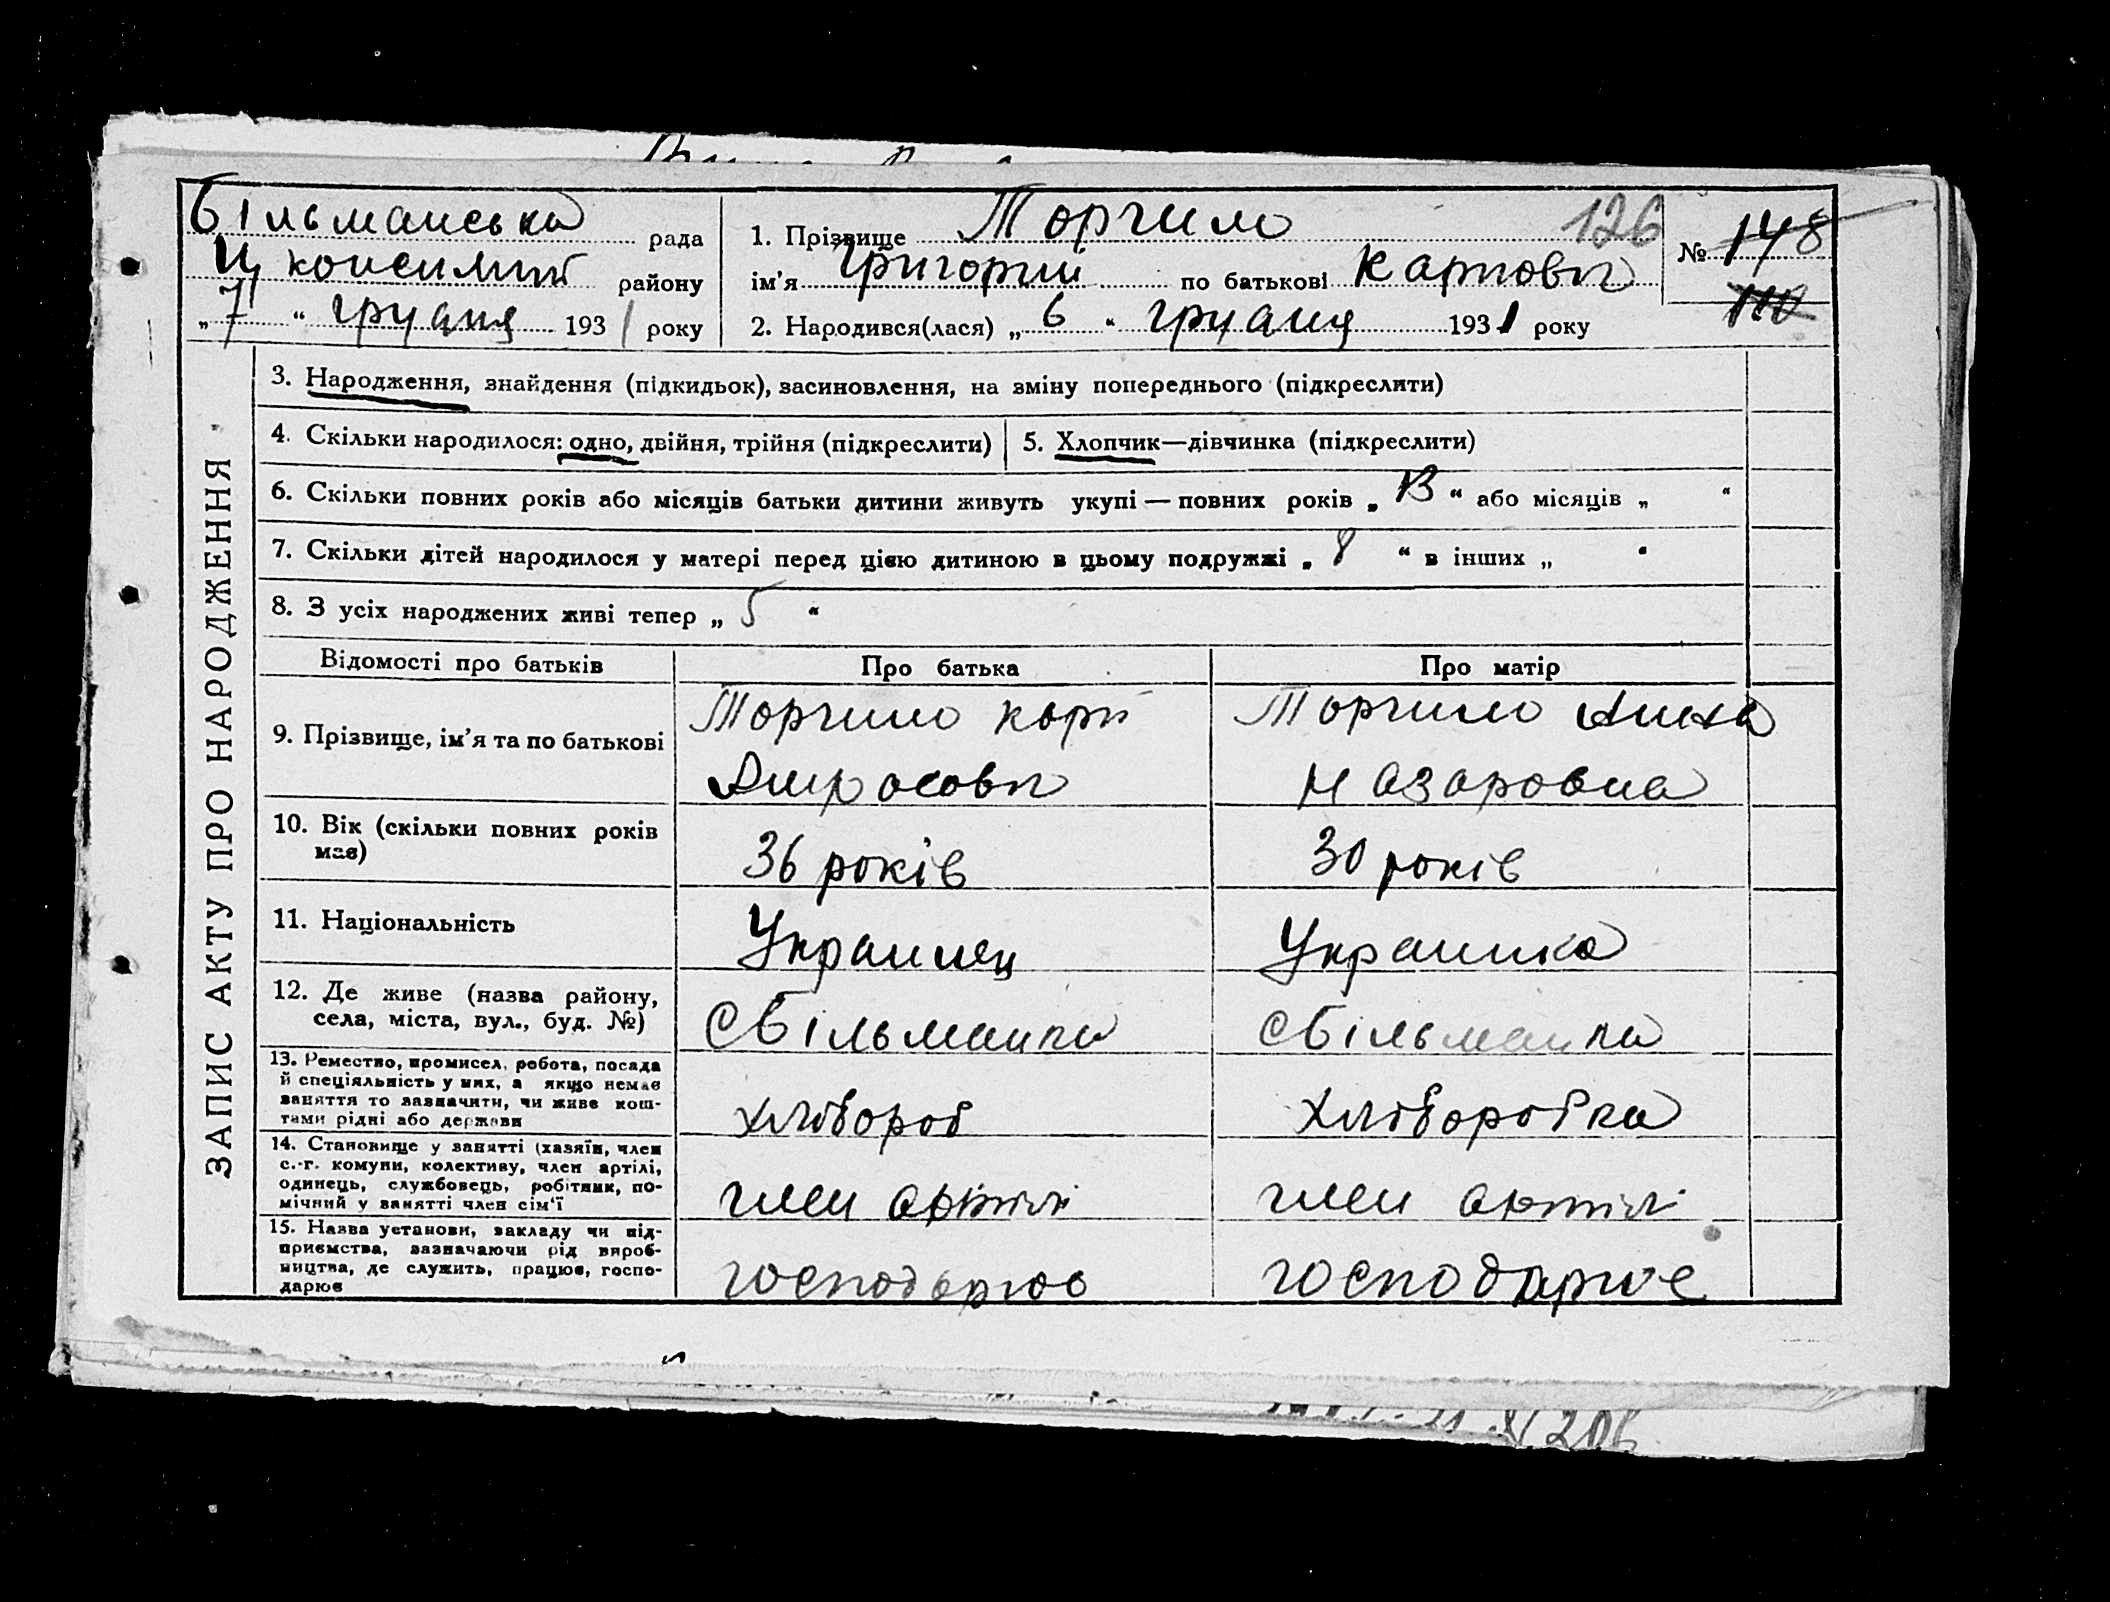 Більманська рада
Цукоксимий району
„ 7 “ грудня 1931 року
1. Прізвище Торчило 126
ім'я Григорий по батькові Карпович
2. Народився(лася) „ 6 “ грудня 1931 року
№ 148
110
ЗАПИС АКТУ ПРО НАРОДЖЕННЯ
3. Народження, знайдення (підкидьок), засиновлення, на зміну попереднього (підкреслити)
4. Скільки народилося: одно, двійня, трійня (підкреслити)
5. Хлопчик—дівчинка (підкреслити)
6. Скільки повних років або місяців батьки дитини живуть укупі — повних років „ 13 “ або місяців „ “
7. Скільки дітей народилося у матері перед цією дитиною в цьому подружжі „ 8 “ в інших „ “
8. З усіх народжених живі тепер „ 5 “
Відомості про батьків
Про батька
Про матір
9. Прізвище, ім'я та по батькові
Торчило Карп
Торчило Анна
Назаровна
10. Вік (скільки повних років
має)
36 років
30 років
11. Національність
Украинец
Украинка
12. Де живе (назва району,
села, міста, вул., буд. №)
с Більманка
с Більманка
13. Ремество, промисел, робота, посада
й спеціяльність у них, а якщо немає
заняття то зазначити, чи живе кош-
тами рідні або держави
хлібороб
хліборобка
14. Становище у занятті (хазяїн, член
с.-г. комуни, колективу, член артілі,
одинець, службовець, робітник, по-
мічний у занятті член сім'ї
член артілі
член артілі
15. Назва установи, закладу чи під-
приємства, зазначаючи рід вироб-
ництва, де служить, працює, госпо-
дарює
господарює
господарює